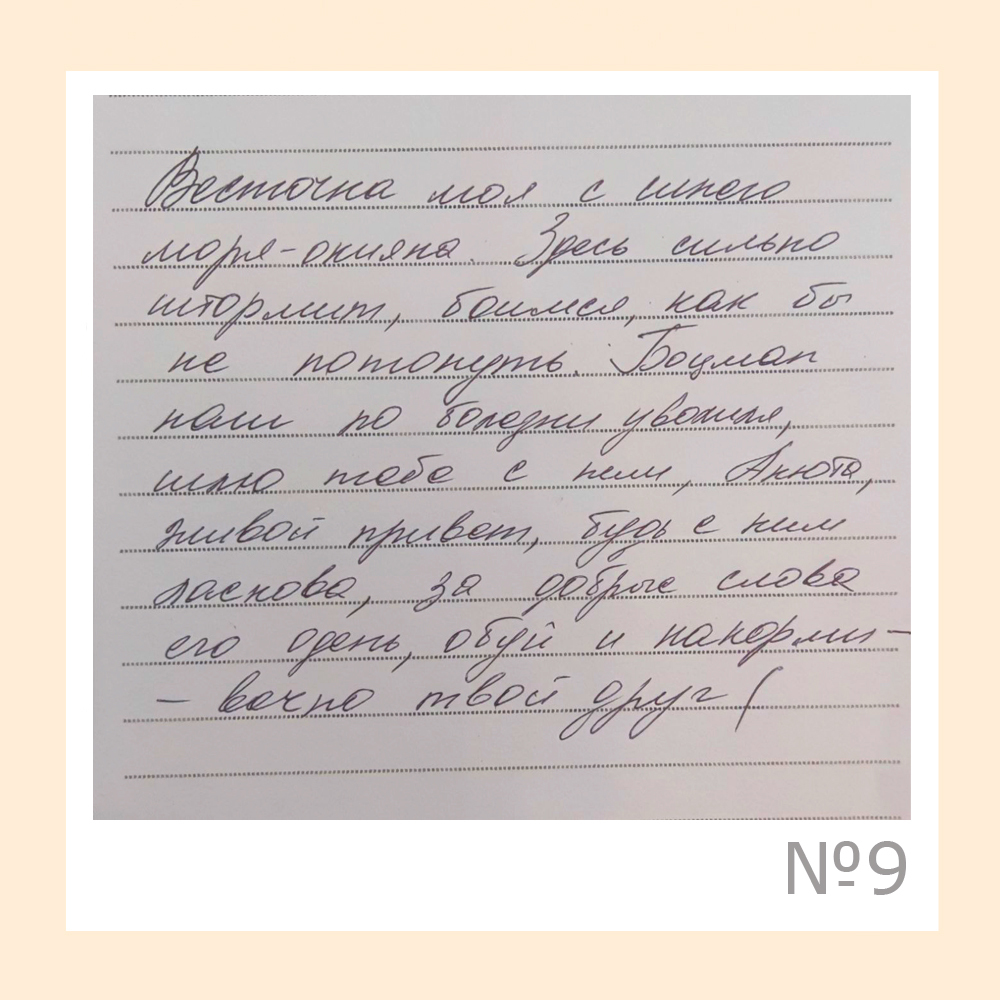 Весточка моя с синего
моря-окияна. Здесь сильно
штормит, боимся, как бы
не потонуть. Боцман
наш по болезни уволился,
шлю тебе с ним, Анюта,
живой привет, будь с ним
ласкова, за добрые слова
его одень, обуй и накорми-
- вечно твой друг!
№9